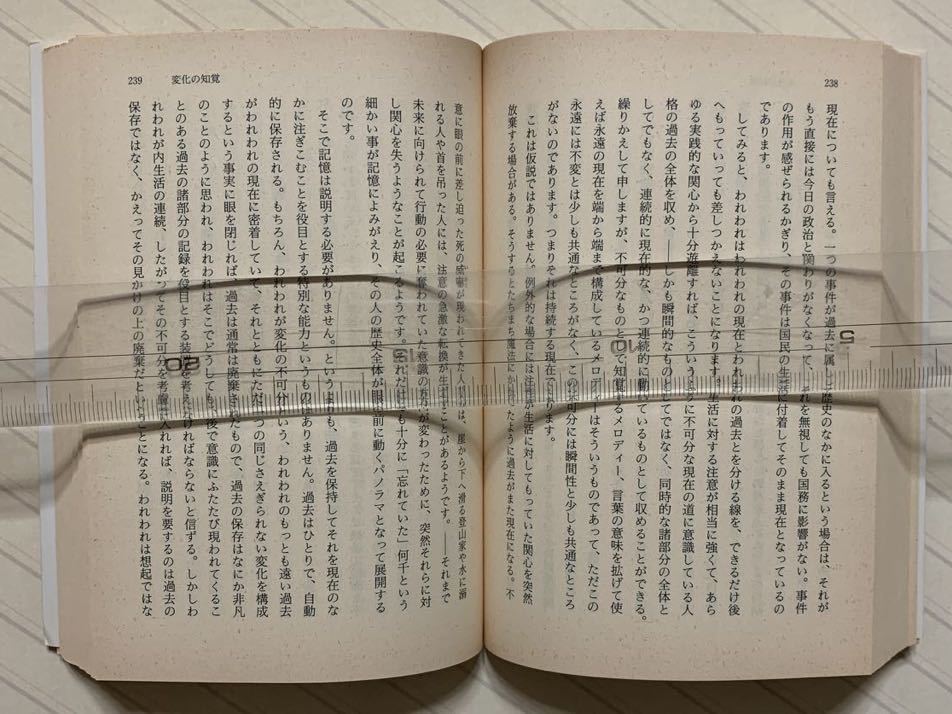 238
現在についても言える。一つの事件が過去に属し歴史のなかに入るという場合は、それが
もう直接には今日の政治と関わりがなくなって、それを無視しても国務に影響がない。事件
の作用が感ぜられるかぎり、その事件は国民の生活に付着してそのまま現在となっているの
であります。
してみると、われわれはわれわれの現在とわれわれの過去とを分ける線を、できるだけ後
へもっていっても差しつかえないことになります。生活に対する注意が相当に強くて、あら
ゆる実践的な関心から十分遊離すれば、こういうふうに不可分な現在の道に意識している人
格の過去の全体を収め、――しかも瞬間的なものとしてではなく、同時的な諸部分の全体と
してでもなく、連続的に現在的な、かつ連続的に動いているものとして収めることができる。
繰りかえして申しますが、不可分なものとして知覚するメロディー、言葉の意味を拡げて使
えば永遠の現在を端から端まで構成しているメロディーはそういうものであって、ただこの
永遠には不変とは少しも共通なところがなく、この不可分には瞬間性と少しも共通なところ
がないのであります。つまりそれは持続する現在であります。
これは仮説ではありません。例外的な場合には注意が生活に対してもっていた関心を突然
放棄する場合がある。そうするとたちまち魔法にかけたように過去がまた現在になる。不
239
変化の知覚
意に眼の前に差し迫った死の威嚇が現われてきた人間は、崖から下へ滑る登山家や水に溺
れる人や首を吊った人には、注意の急激な転換が生ずることがあるようです。――それまで
未来に向けられて行動の必要に奪われていた意識の方向が変わったために、突然それらに対
し関心を失うようなことが起こるようです。それだけでも十分に「忘れていた」何千という
細かい事が記憶によみがえり、その人の歴史全体が眼の前に動くパノラマとなって展開する
のです。
そこで記憶は説明する必要がありません。というよりも、過去を保持してそれを現在のな
かに注ぎこむことを役目とする特別な能力というものはありません。過去はひとりで、自動
的に保存される。もちろん、われわれが変化の不可分という、われわれのもっとも遠い過去
がわれわれの現在に密着していて、それとともにただ一つの同じさえぎられない変化を構成
するという事実に眼を閉じれば、過去は通常は廃棄されたもので、過去の保存はなにか非凡
のことのように思われ、われわれはそこでどうしても、後で意識にふたたび現われてくるこ
とのある過去の諸部分の記録を役目とする装置を考えなければならないと信ずる。しかしわ
れわれが内生活の連続、したがってその不可分を考慮に入れれば、説明を要するのは過去の
保存ではなく、かえってその見かけの上の廃棄だということになる。われわれは想起ではな
5
10
15
20